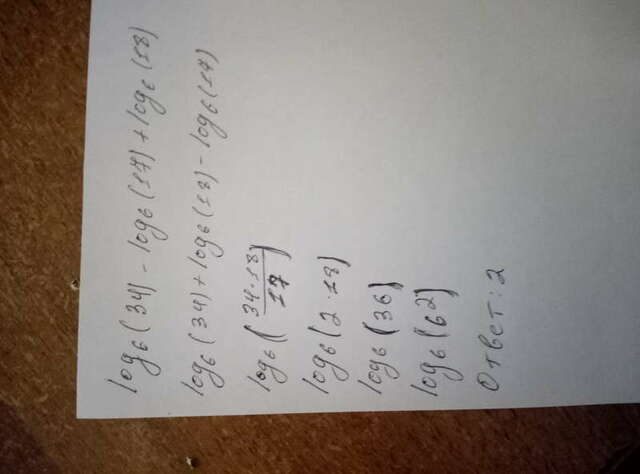 log₆(34) - log₆(17) + log₆(18)
log₆(34) + log₆(18) - log₆(17)
log₆(34·18/17)
log₆(2·18)
log₆(36)
log₆(6²)
Ответ: 2